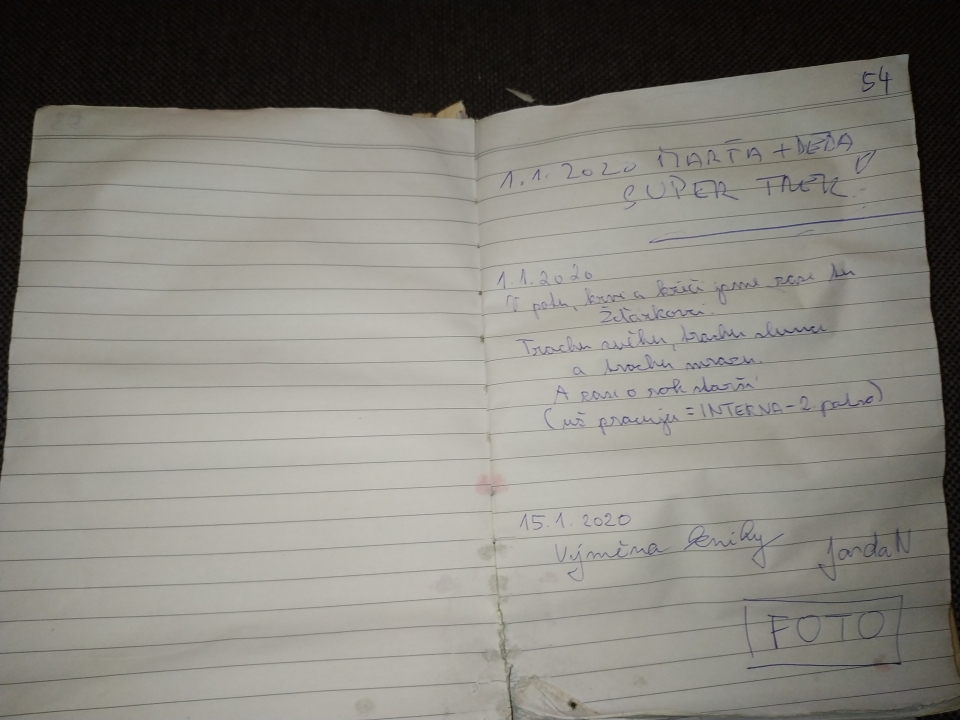 54
1.1.2020 MARŤA + DĚDA
SUPER TREK!
1.1.2020
V potu, krvi a křeči jsme zase tu
Žďárkovi.
Trochu sněhu, trochu slunce
a trochu mrazu.
A zase o rok starší
(už pracuju = INTERNA - 2. patro)
15.1.2020
Výměna knihy JardaN
FOTO